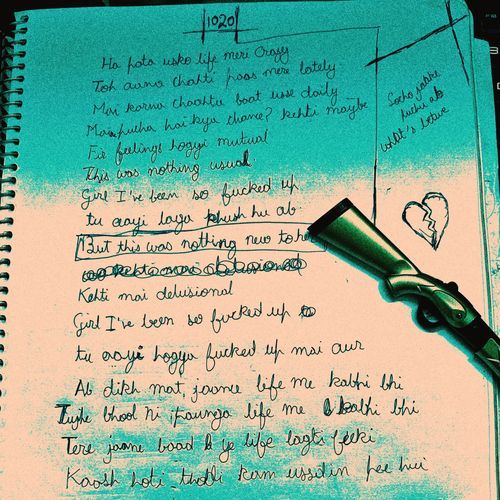 1020
Ha pata usko life meri crazy
Toh aana chahti paas mere lately
Mai karna chaahtu baat usse daily
Mai putha hai kya chance? kehti maybe
Fir feelings hogyi mutual
This was nothing usual
Girl I've been so fucked up
tu aayi laga khush hu ab
But this was nothing new to he
Kehti mai delusional
Girl I've been so fucked up
tu aayi hogya fucked up mai aur
Ab dikh mat jaana life me kabhi bhi
Tujhe bhool ni paunga life me kabhi bhi
Tere jaane baad ye life lagti feeki
Kaash hoti thodi kam ussdin pee hui
Socho
kuchi ab
what's